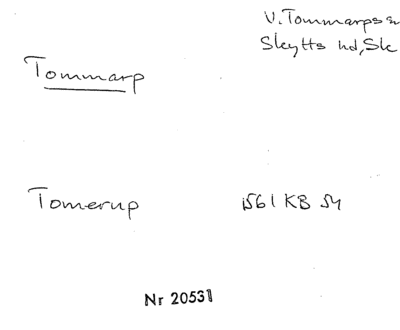 V. Tommarps sn
Skytts hd, Sk
Tommarp
Tomerup 1561 KB 54
Nr 20531